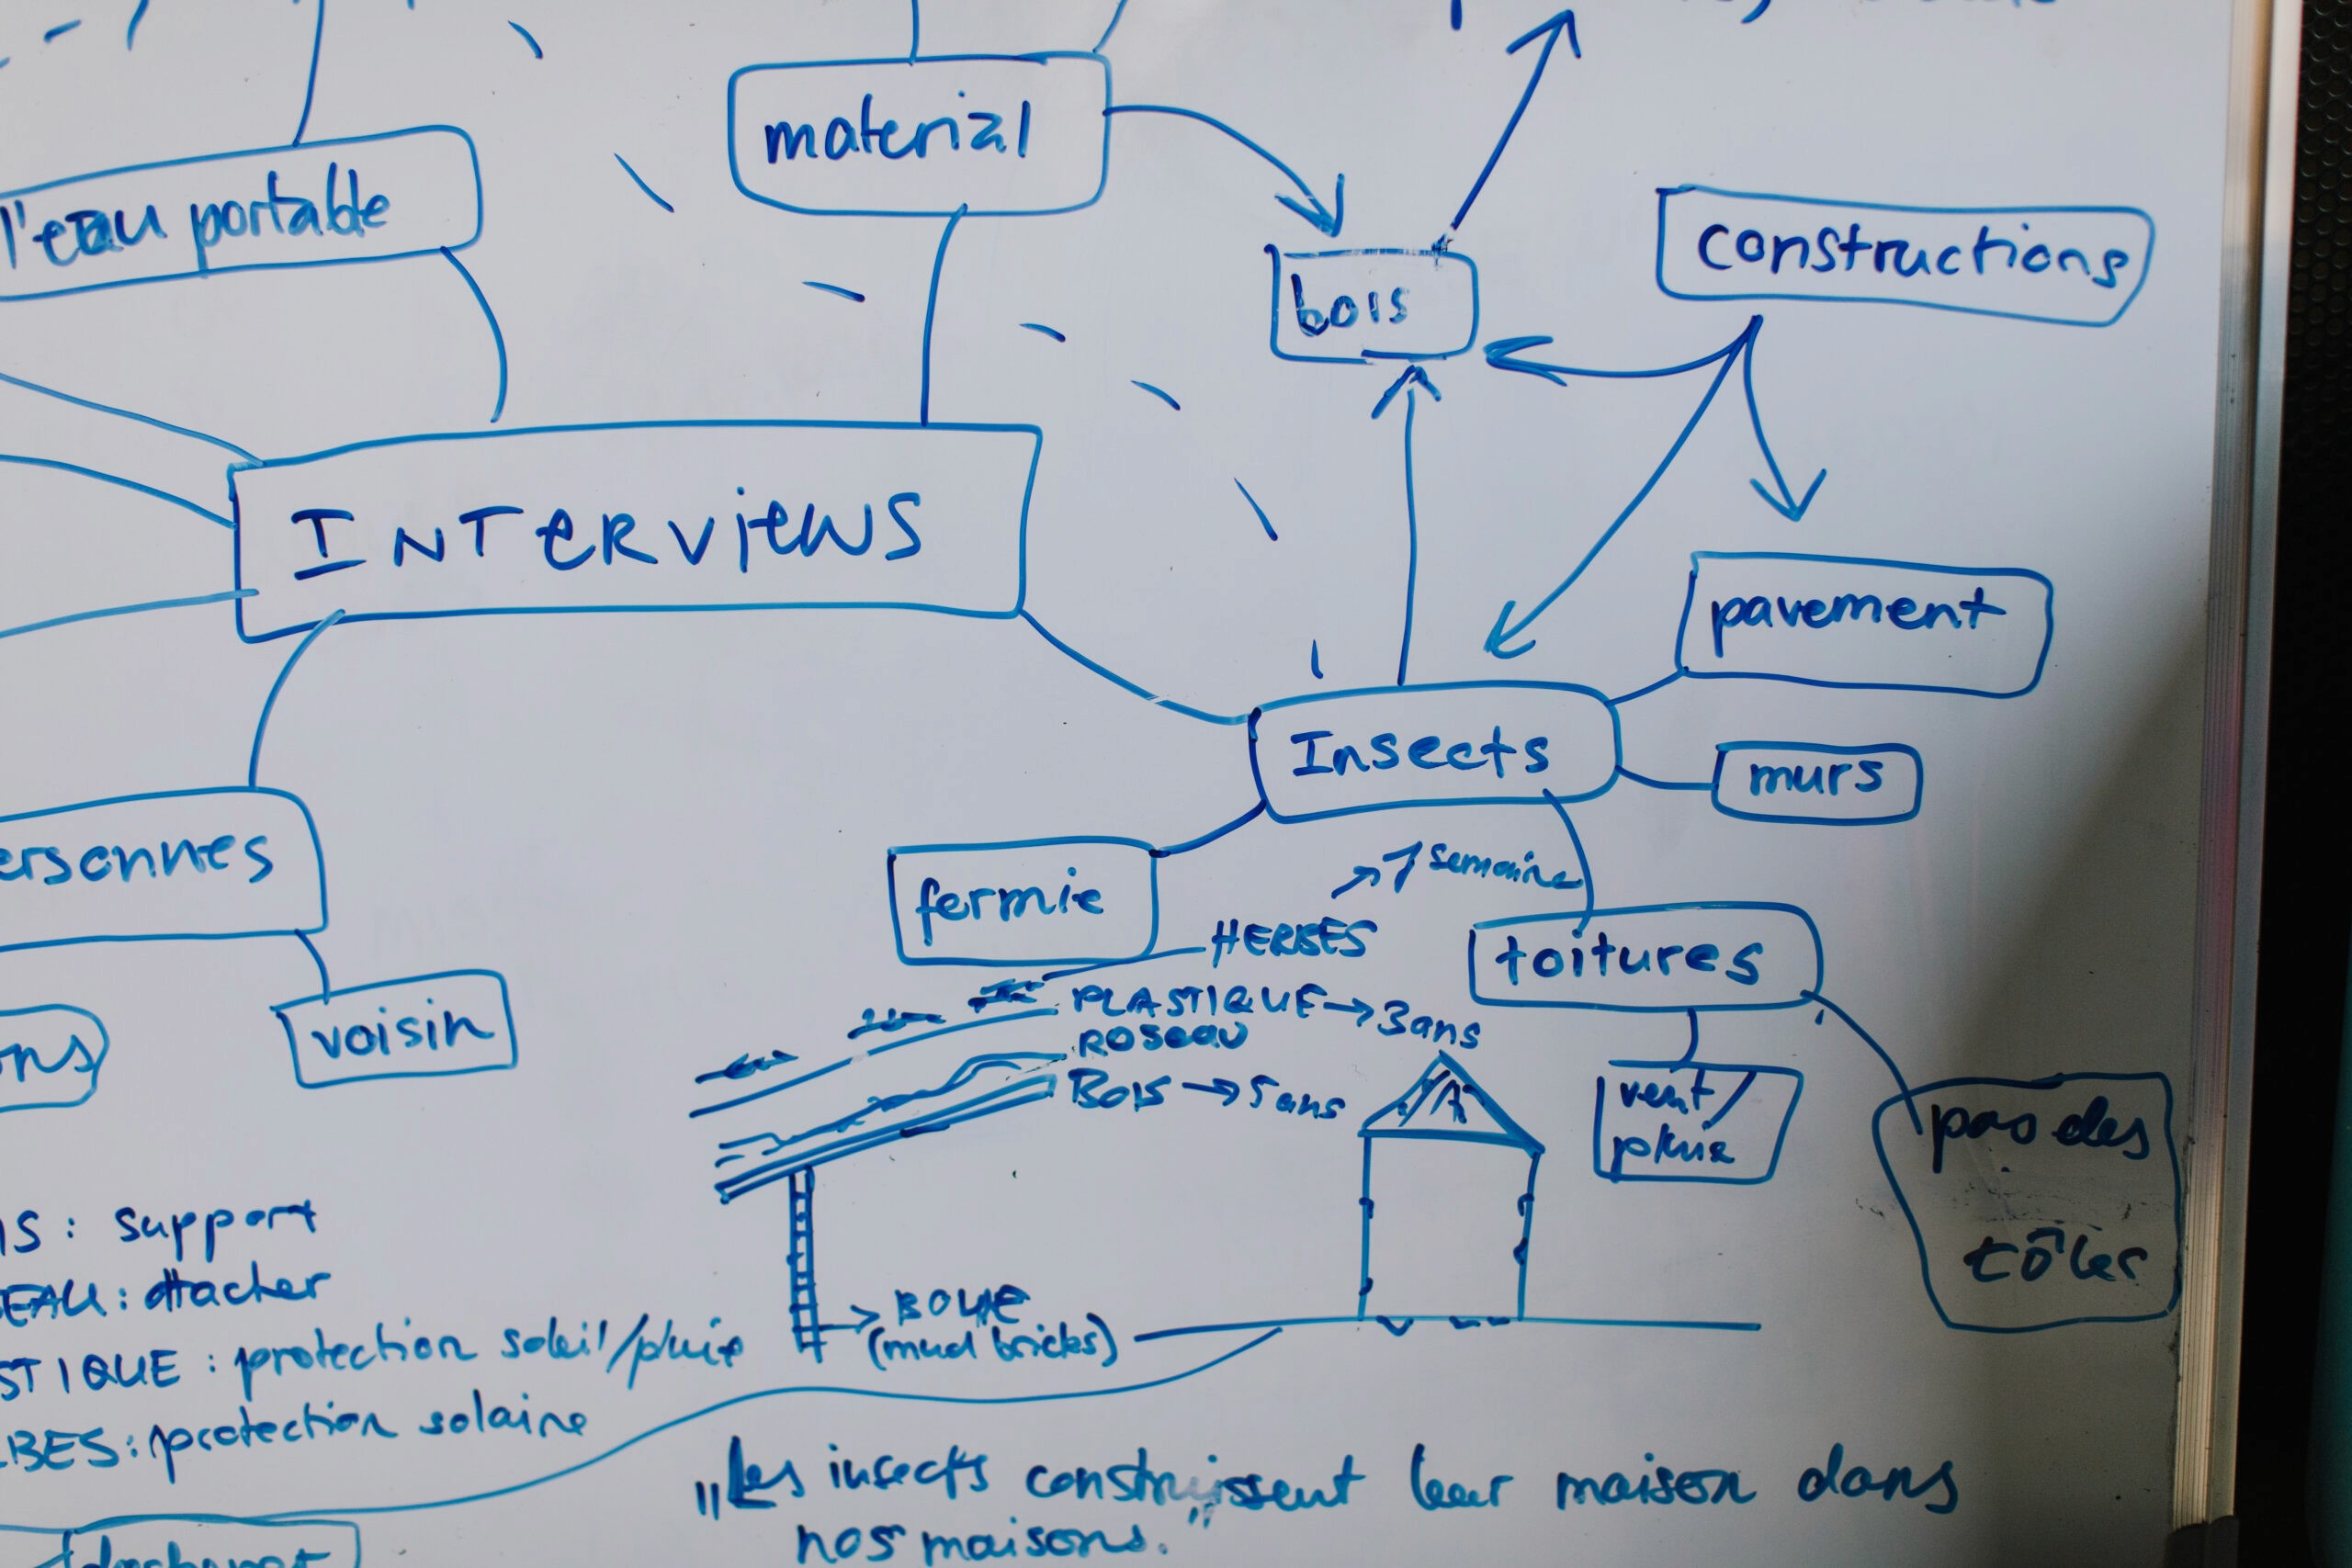 material
l'eau portable
constructions
bois
INTERVIEWS
pavement
Insects
murs
ersonnes
fermie
1 semaine
HERBES
toitures
PLASTIQUE → 3ans
voisin
ROSEAU
ons
BOIS → 5ans
vent/
pluie
pas des
tôles
IS: support
EAU: attacher
BOUE
(mud bricks)
STIQUE: protection soleil/pluie
BES: protection solaire
"Les insects construissent leur maison dans
nos maisons."